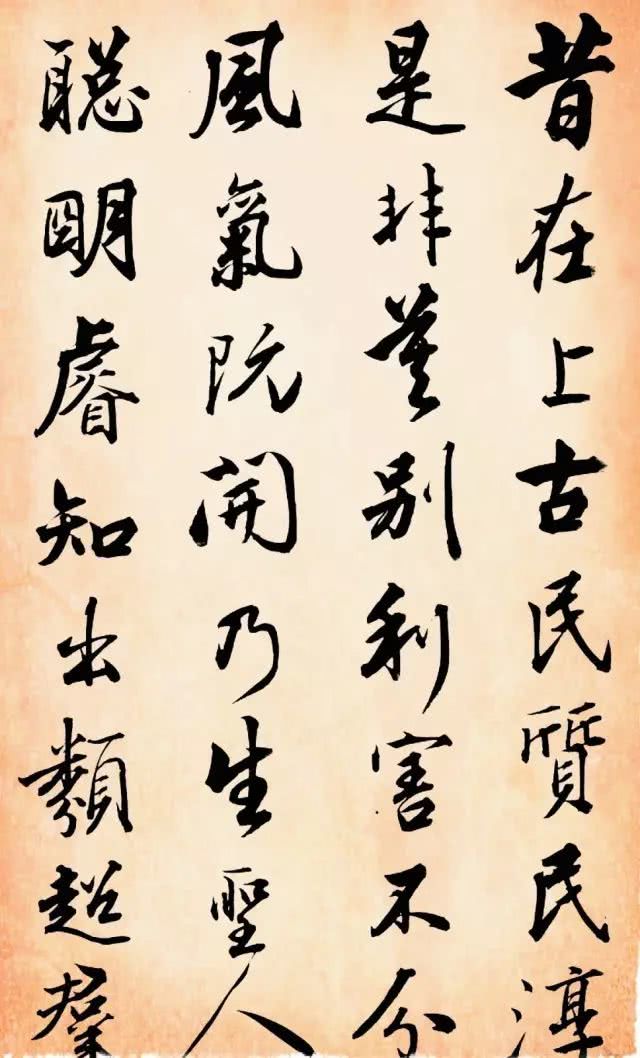 昔在上古民質民淳
是非莫别利害不分
風氣既開乃生聖人
聰明睿知出類超群